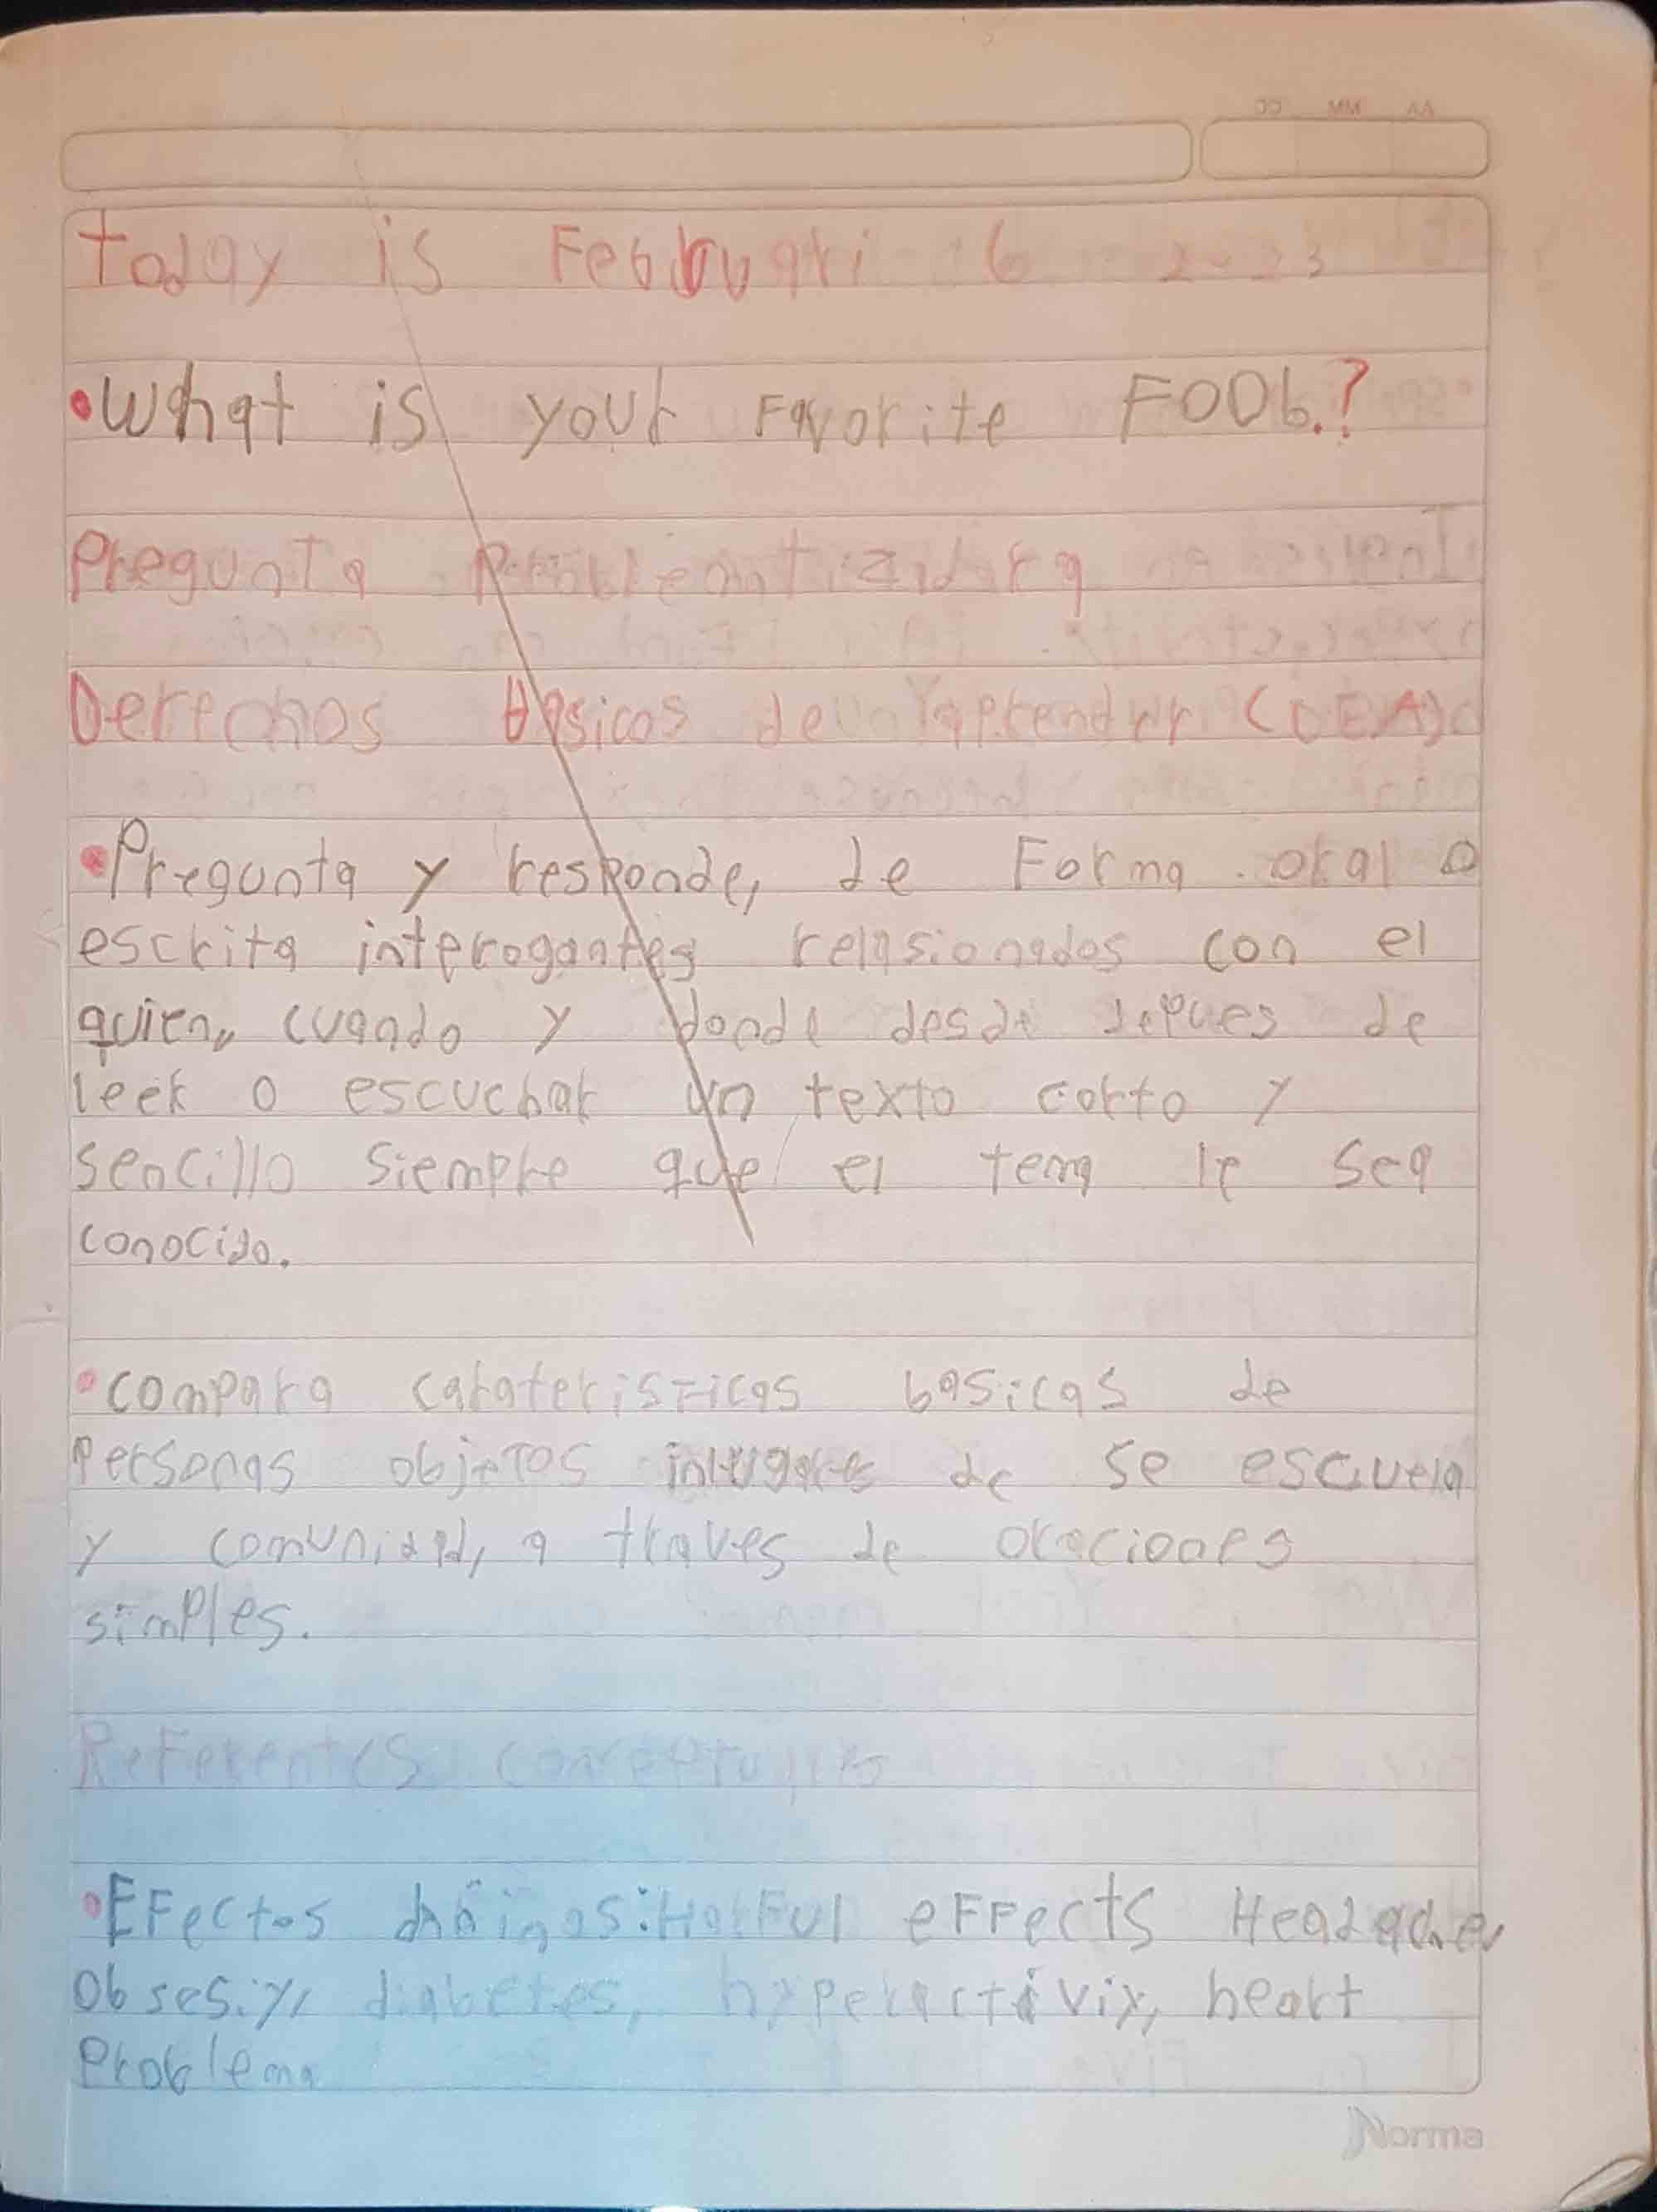 CC MM AA
today is Februari 6 2023
•What is your Favorite FOOb.?
Pregunta Problemtizidora
Derechos Basicos de aprender (DEA)
•Pregunta y responde, de Forma oral o
escrita interogantes relasionados con el
quien, cuando y donde desde depues de
leer o escuchar un texto corto y
sencillo siempre que el tema le sea
conocido.
•compara carateristicas basicas de
Personas objetos de se escuela
y comunidad, a traves de oraciones
simples.
Referentes conceptuales
•EFectos dañinos: HarFul eFFects Headache,
Obsesiy, diabetes, hyperactivix, heart
Problema
Norma